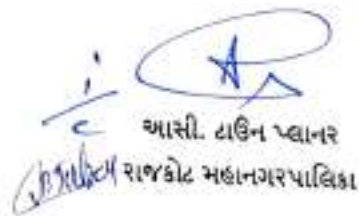 i/c
આસી. ટાઉન પ્લાનર
રાજકોટ મહાનગરપાલિકા